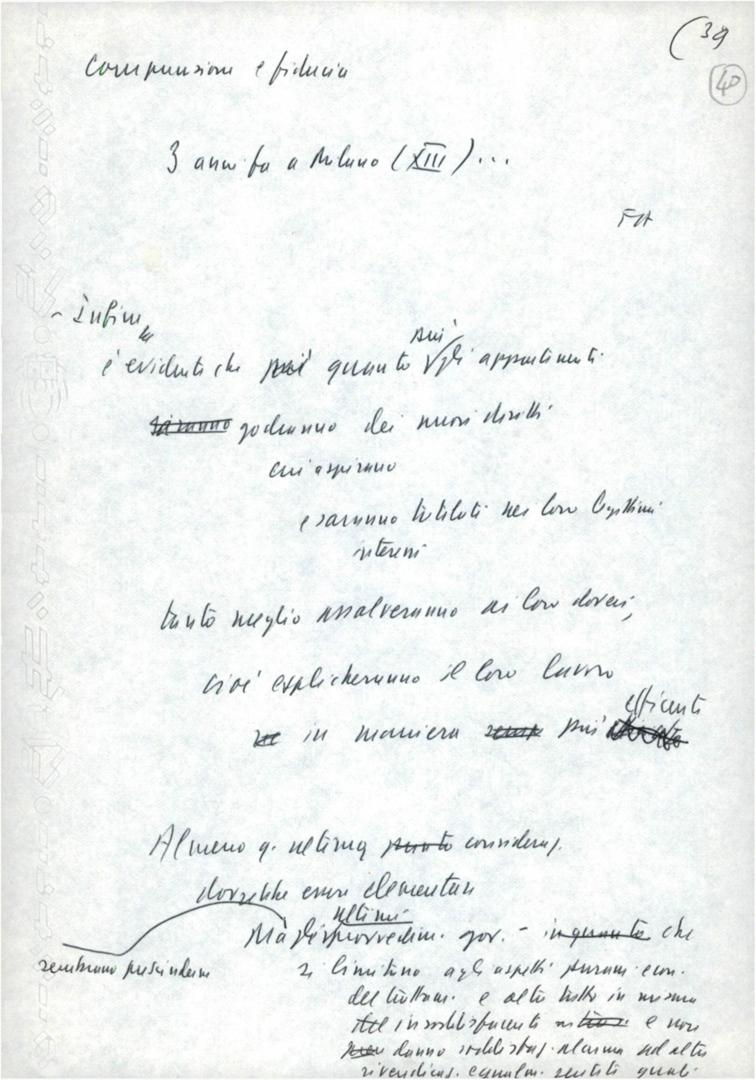 (39
40
Comprensione e fiducia
3 anni fa a Milano (XIII)...
- Infine
è evidente che più quanto più gli appartenenti
saranno godranno dei nuovi diritti
cui aspirano
e saranno tutelati nei loro legittimi
interessi
tanto meglio assolveranno ai loro doveri,
cioè esplicheranno il loro lavoro
in maniera più efficiente
Almeno q. ultima punto consideraz.
dovrebbe essere elementare
Ma gli ultimi provvedim. gov. - in quanto che
sembrano prescindere
si limitino agli aspetti puram. econ.
del trattam. e oltre tutto in misura
insoddisfacente e non
danno soddisfaz. alcuna ad altre
rivendicaz. egualm. sentite quali